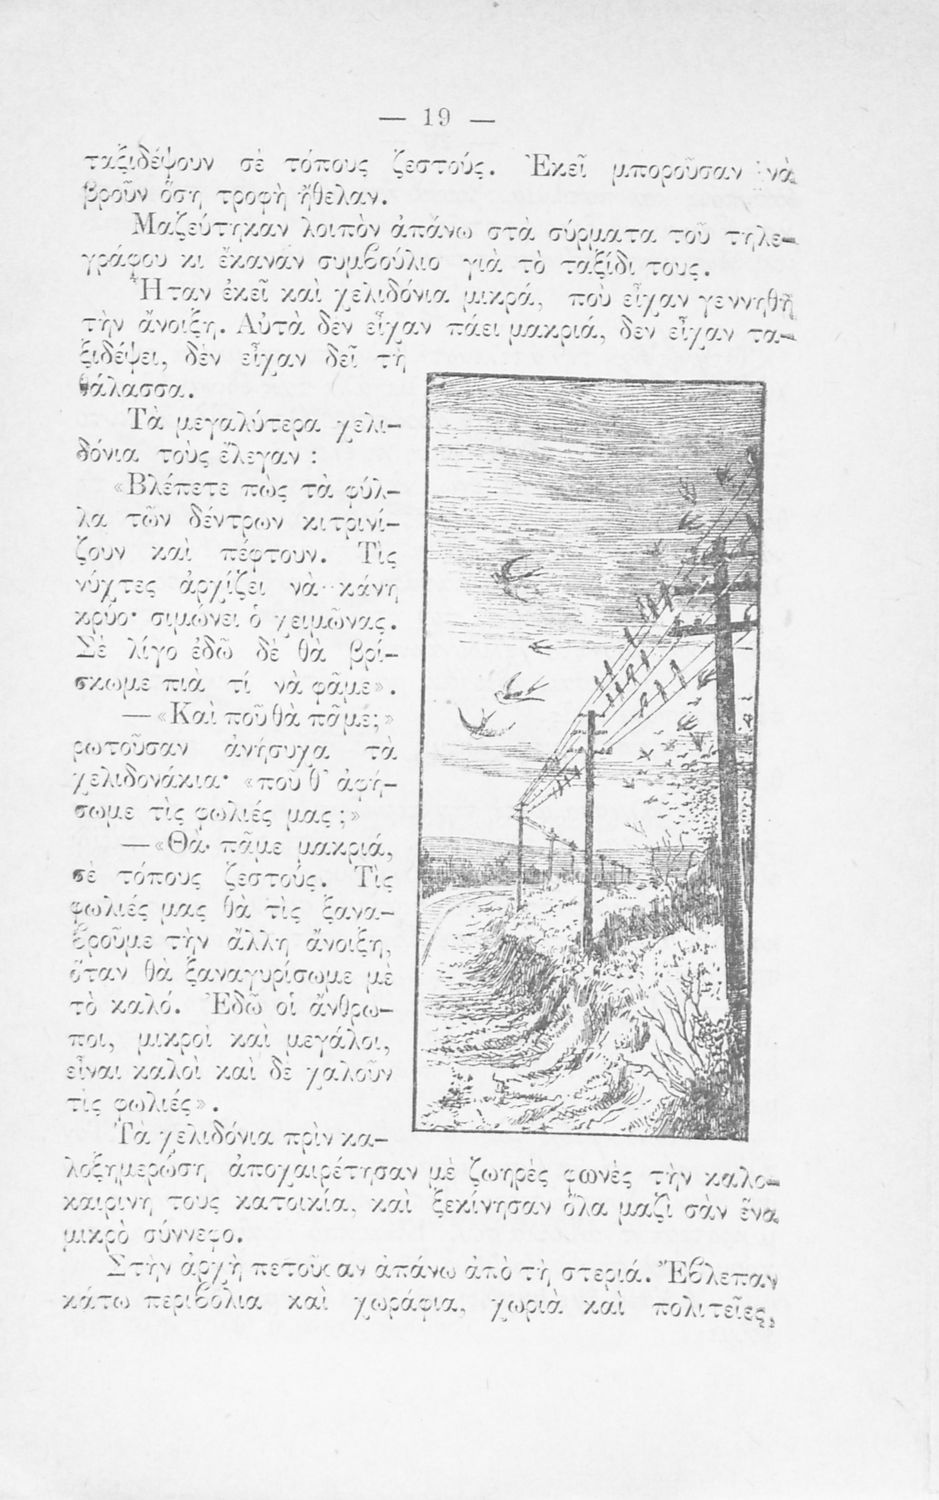 — 19 —
ταξιδέψουν σὲ τόπους ζεστούς. Ἐκεῖ μποροῦσαν νὰ
βροῦν ὅση τροφὴ ἤθελαν.
Μαζεύτηκαν λοιπὸν ἀπάνω στὰ σύρματα τοῦ τηλε-
γράφου κι ἔκαναν συμβούλιο γιὰ τὸ ταξίδι τους.
Ἦταν ἐκεῖ καὶ χελιδόνια μικρά, ποὺ εἶχαν γεννηθῆ
τὴν ἄνοιξη. Αὐτὰ δὲν εἶχαν πάει μακριά, δὲν εἶχαν τα-
ξιδέψει, δὲν εἶχαν δεῖ τὴ
θάλασσα.
Τὰ μεγαλύτερα χελι-
δόνια τοὺς ἔλεγαν :
«Βλέπετε πὼς τὰ φύλ-
λα τῶν δέντρων κιτρινί-
ζουν καὶ πέφτουν. Τὶς
νύχτες ἀρχίζει νὰ κάνη
κρύο· σιμώνει ὁ χειμῶνας.
Σὲ λίγο ἐδῶ δὲ θὰ βρί-
σκωμε πιὰ τί νὰ φᾶμε».
— «Καὶ ποῦ θὰ πᾶμε;»
ρωτοῦσαν ἀνήσυχα τὰ
χελιδονάκια· «ποῦ θ' ἀφή-
σωμε τὶς φωλιές μας ;»
— «Θὰ πᾶμε μακριά,
σὲ τόπους ζεστούς. Τὶς
φωλιές μας θὰ τὶς ξανα-
βροῦμε τὴν ἄλλη ἄνοιξη,
ὅταν θὰ ξαναγυρίσωμε μὲ
τὸ καλό. Ἐδῶ οἱ ἄνθρω-
ποι, μικροὶ καὶ μεγάλοι,
εἶναι καλοὶ καὶ δὲ χαλοῦν
τὶς φωλιές».
Τὰ χελιδόνια πρὶν κα-
λοξημερώση ἀποχαιρέτησαν μὲ ζωηρὲς φωνὲς τὴν καλο-
καιρινή τους κατοικία, καὶ ξεκίνησαν ὅλα μαζὶ σὰν ἕνα
μικρὸ σύννεφο.
Στὴν ἀρχὴ πετοῦσαν ἀπάνω ἀπὸ τὴ στεριά. Ἔβλεπαν
κάτω περιβόλια καὶ χωράφια, χωριὰ καὶ πολιτεῖες,